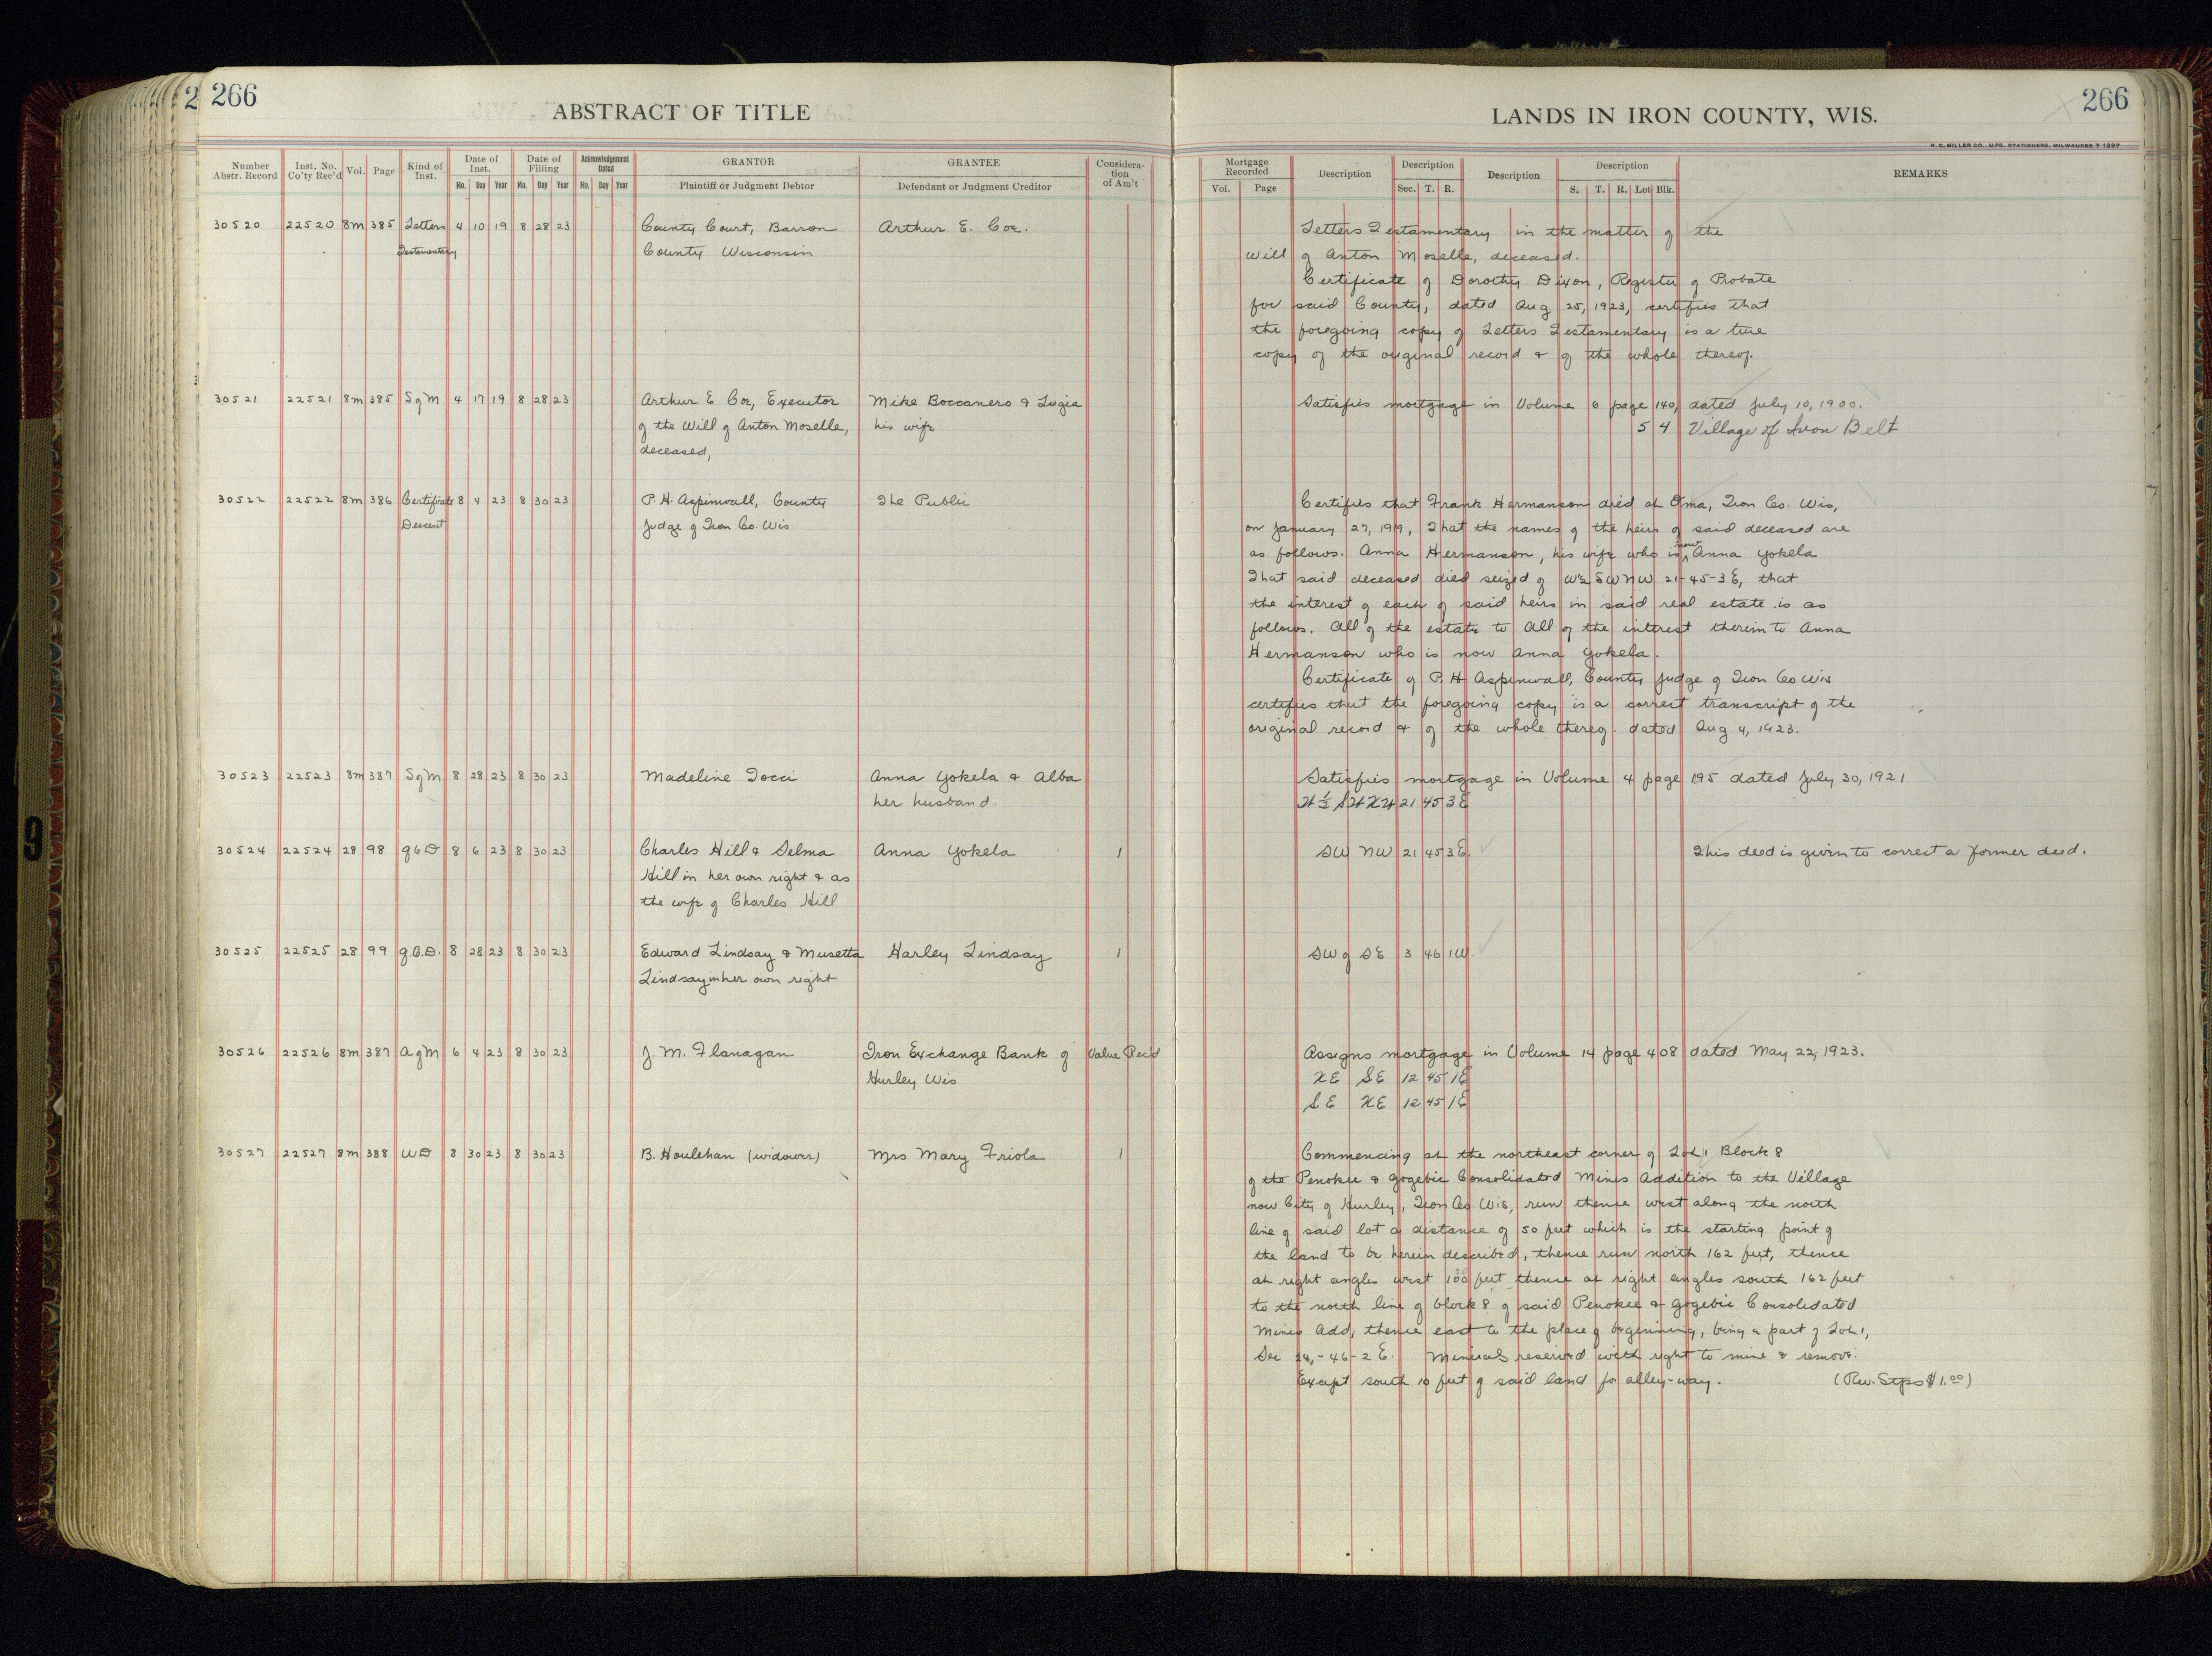 2 266
ABSTRACT OF TITLE
LANDS IN IRON COUNTY, WIS.
266
H. C. MILLER CO., MFG. STATIONERS, MILWAUKEE
Number Abstr. Record | Inst. No. Co'ty Rec'd | Vol. | Page | Kind of Inst. | Date of Inst. Mo. Day Year | Date of Filling Mo. Day Year | Acknowledgement Dated Mo. Day Year | GRANTOR Plaintiff or Judgment Debtor | GRANTEE Defendant or Judgment Creditor | Considera- tion of Am't
Mortgage Recorded Vol. Page | Description | Description Sec. T. R. | Description | Description S. T. R. Lot Blk. | REMARKS
30520 22520 8m 385 Letters 4 10 19 8 28 23 County Court, Barron Arthur E. Coe. Letters Testamentary in the matter of the
Testamentary County Wisconsin will of Anton Moselle, deceased.
Certificate of Dorothy Dixon, Register of Probate
for said County, dated Aug 25, 1923, certifies that
the foregoing copy of Letters Testamentary is a true
copy of the original record & of the whole thereof.
30521 22521 8m 385 S of M 4 17 19 8 28 23 Arthur E Coe, Executor Mike Boccanero & Lugia Satisfies mortgage in Volume 6 page 140, dated July 10, 1900.
of the Will of Anton Moselle, his wife 5 4 Village of Iron Belt
deceased,
30522 22522 8m 386 Certificate 8 4 23 8 30 23 P. H. Aspinwall, County The Public Certifies that Frank Hermanson died at Oma, Iron Co. Wis,
Descent Judge of Iron Co. Wis on January 27, 1919, That the names of the heirs of said deceased are
as follows. Anna Hermanson, his wife who is now Anna Yokela
That said deceased died seized of W½ SW NW 21-45-3 E, that
the interest of each of said heirs in said real estate is as
follows. All of the estate to All of the interest therein to Anna
Hermanson who is now Anna Yokela.
Certificate of P. H Aspinwall, County Judge of Iron Co Wis
certifies that the foregoing copy is a correct transcript of the
original record & of the whole thereof. dated Aug 4, 1923.
30523 22523 8m 387 S of M 8 28 23 8 30 23 Madeline Tocci Anna Yokela & Alba Satisfies mortgage in Volume 4 page 195 dated July 30, 1921
her husband. W ½ SW NW 21 45 3E
30524 22524 28 98 Q C D 8 6 23 8 30 23 Charles Hill & Selma Anna Yokela 1 SW NW 21 45 3E. This deed is given to correct a former deed.
Hill in her own right & as
the wife of Charles Hill
30525 22525 28 99 Q. C. D. 8 28 23 8 30 23 Edward Lindsay & Musetta Harley Lindsay 1 SW of SE 3 46 1W.
Lindsay in her own right
30526 22526 8m 387 A of M 6 4 23 8 30 23 J. M. Flanagan Iron Exchange Bank of Value Rec'd Assigns mortgage in Volume 14 page 408 dated May 22, 1923.
Hurley Wis NE SE 12 45 1E
SE NE 12 45 1E
30527 22527 8m 388 WD 8 30 23 8 30 23 B. Houlehan (widower) Mrs Mary Friola 1 Commencing at the northeast corner of Lot 1 Block 8
of the Penokee & Gogebic Consolidated Mines Addition to the Village
now City of Hurley, Iron Co. Wis, run thence west along the north
line of said lot a distance of 50 feet which is the starting point of
the land to be herein described, thence run north 162 feet, thence
at right angles west 100 feet thence at right angles south 162 feet
to the north line of block 8 of said Penokee & Gogebic Consolidated
Mines Add, thence east to the place of beginning, being a part of Lot 1,
Sec 24,-46-2 E. Minerals reserved with right to mine & remove.
Except south 10 feet of said land for alley-way. (Rev. Stps $1.00)